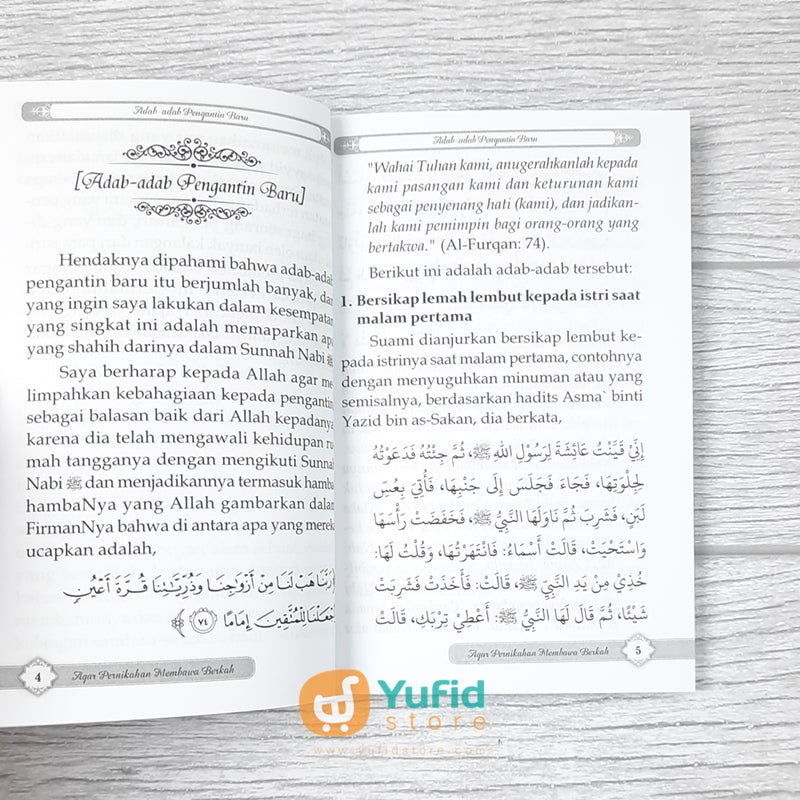 Adab-adab Pengantin Baru
[Adab-adab Pengantin Baru]
Hendaknya dipahami bahwa adab-adab
pengantin baru itu berjumlah banyak, dan
yang ingin saya lakukan dalam kesempatan
yang singkat ini adalah memaparkan apa
yang shahih darinya dalam Sunnah Nabi ﷺ
Saya berharap kepada Allah agar me
limpahkan kebahagiaan kepada pengantin
sebagai balasan baik dari Allah kepadanya
karena dia telah mengawali kehidupan ru
mah tangganya dengan mengikuti Sunnah
Nabi ﷺ dan menjadikannya termasuk hamba
hambaNya yang Allah gambarkan dalam
FirmanNya bahwa di antara apa yang mereka
ucapkan adalah,
رَبَّنَا هَبْ لَنَا مِنْ أَزْوَاجِنَا وَذُرِّيَّاتِنَا قُرَّةَ أَعْيُنٍ
وَاجْعَلْنَا لِلْمُتَّقِينَ إِمَامًا ﴿٧٤﴾
4
Agar Pernikahan Membawa Berkah
Adab-adab Pengantin Baru
"Wahai Tuhan kami, anugerahkanlah kepada
kami pasangan kami dan keturunan kami
sebagai penyenang hati (kami), dan jadikan-
lah kami pemimpin bagi orang-orang yang
bertakwa." (Al-Furqan: 74).
Berikut ini adalah adab-adab tersebut:
1. Bersikap lemah lembut kepada istri saat
malam pertama
Suami dianjurkan bersikap lembut ke-
pada istrinya saat malam pertama, contohnya
dengan menyuguhkan minuman atau yang
semisalnya, berdasarkan hadits Asma` binti
Yazid bin as-Sakan, dia berkata,
إِنِّي قَيَّنْتُ عَائِشَةَ لِرَسُوْلِ اللّٰهِ ﷺ، ثُمَّ جِئْتُهُ فَدَعَوْتُهُ
لِجِلْوَتِهَا، فَجَاءَ فَجَلَسَ إِلَى جَنْبِهَا، فَأُتِيَ بِعُسِّ
لَبَنٍ، فَشَرِبَ ثُمَّ نَاوَلَهَا النَّبِيُّ ﷺ، فَخَفَضَتْ رَأْسَهَا
وَاسْتَحْيَتْ، قَالَتْ أَسْمَاءُ: فَانْتَهَرْتُهَا، وَقُلْتُ لَهَا:
خُذِيْ مِنْ يَدِ النَّبِيِّ ﷺ، قَالَتْ: فَأَخَذَتْ فَشَرِبَتْ
شَيْئًا، ثُمَّ قَالَ لَهَا النَّبِيُّ ﷺ: أَعْطِيْ تِرْبَكِ، قَالَتْ
Agar Pernikahan Membawa Berkah
5
Yufid
store
www.yufidstore.com